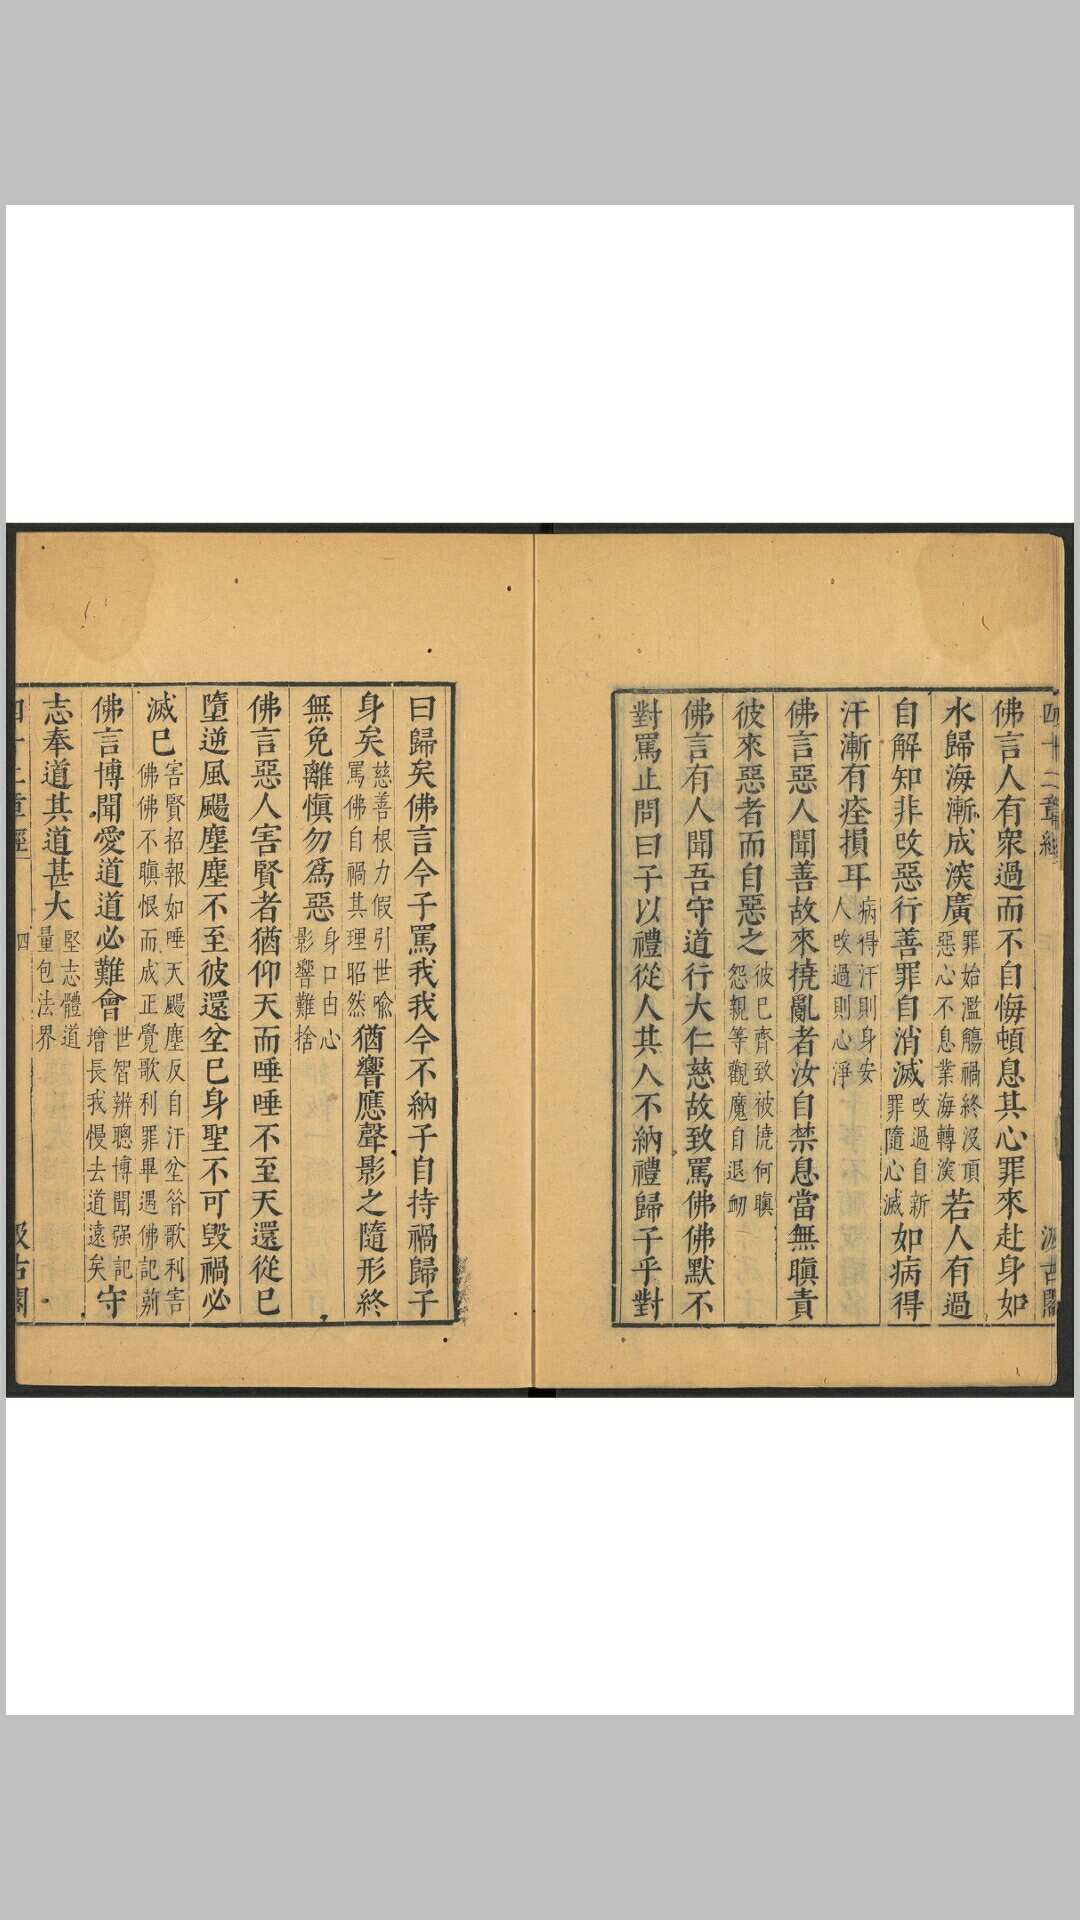 四十二章經
汲古閣
佛言人有衆過而不自悔頓息其心罪來赴身如
水歸海漸成深廣罪始濫觴禍終沒頂惡心不息業海轉深若人有過
自解知非改惡行善罪自消滅改過自新罪隨心滅如病得
汗漸有痊損耳病得汗則身安人改過則心淨
佛言惡人聞善故來撓亂者汝自禁息當無瞋責
彼來惡者而自惡之彼已齊致被撓何瞋怨親等觀魔自退衂
佛言有人聞吾守道行大仁慈故致罵佛佛默不
對罵止問曰子以禮從人其人不納禮歸子乎對
曰歸矣佛言今子罵我我今不納子自持禍歸子
身矣慈善根力假引世喻罵佛自禍其理昭然猶響應聲影之隨形終
無免離慎勿爲惡身口由心影響難捨
佛言惡人害賢者猶仰天而唾唾不至天還從已
墮逆風颺塵塵不至彼還坌已身聖不可毀禍必
滅已害賢招報如唾天颺塵反自汙坌昝歌利害佛佛不瞋恨而成正覺歌利罪畢遇佛記莂
佛言博聞愛道道必難會世智辨聰博聞强記增長我慢去道遠矣守
志奉道其道甚大堅志體道量包法界
四十二章經
四
汲古閣